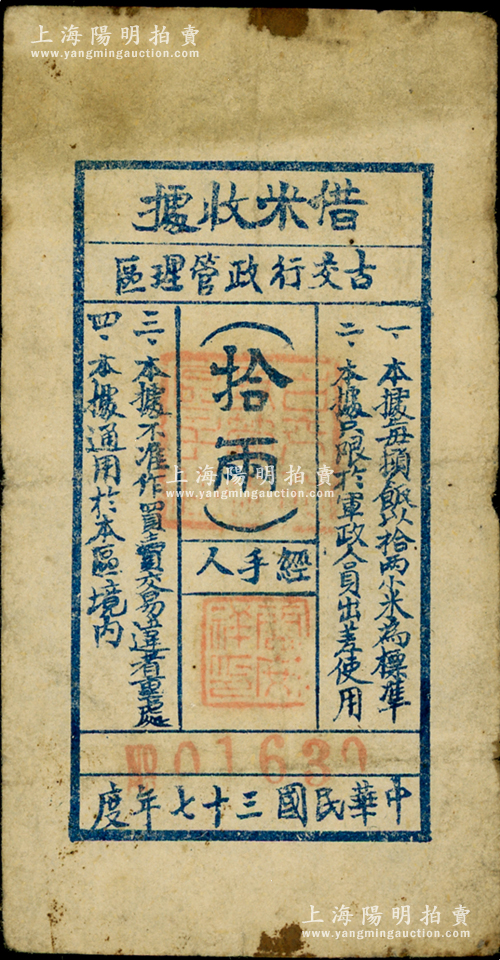 上海陽明拍賣
www.yangmingauction.com
借米收據
古交行政管理區
一、本據每頓飯以拾两小米為標準
二、本據只限於軍政人員出差使用
（拾两）
三、本據不准作買賣交易違者重處
四、本據通用於本區境内
上海陽明拍賣
www.yangmingauction.com
經手人
01630
中華民國三十七年度
上海陽明拍賣
www.yangmingauction.com